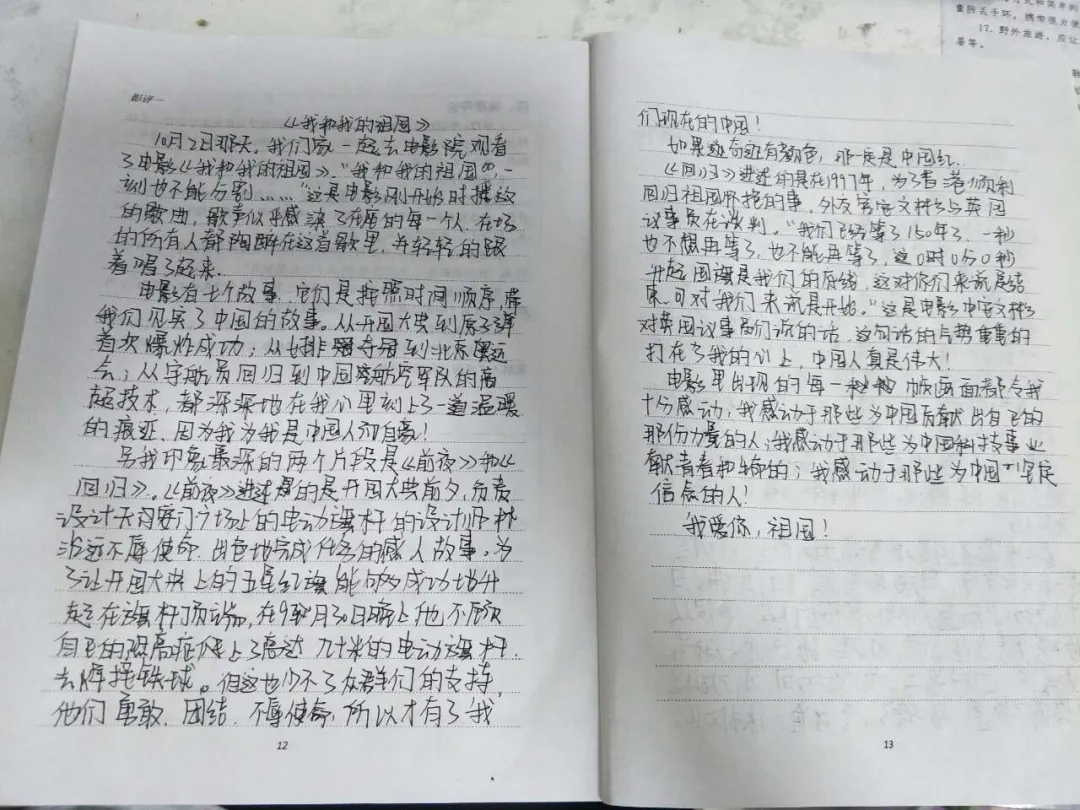 影评一
《我和我的祖国》
10月2日那天,我们家一起去电影院观看
了电影《我和我的祖国》。"我和我的祖国,一
刻也不能分割……"这是电影刚开始时播放
的歌曲,歌声似乎感染了在座的每一个人,在场
的所有人都陶醉在这首歌里,并轻轻的跟
着唱了起来.
电影有七个故事,它们是按照时间顺序,带
我们见实了中国的故事。从开国大典到原子弹
首次爆炸成功;从女排夺冠到北京奥运
会;从宇航员回归到中国空军队的高
超技术,都深深地在我们里刻上了一道温暖
的痕迹,因为我为我是中国人而自豪!
另我印象最深的两个片段是《前夜》和《
回归》。《前夜》讲述的是开国大典前夕,负责
设计天安门广场上的电动旗杆的设计师林
治远不辱使命,出色地完成任务的感人故事。为
了让开国大典上的五星红旗能够成功地升
起在旗杆顶端,在9月30日晚上他不顾
自己的恐高症爬上了高达几十米的电动旗杆,
去焊接铁球。但这也少不了众群们的支持,
他们勇敢、团结、不辱使命,所以才有了我
12
们现在的中国!
如果这奇迹有颜色,那一定是中国红.
《回归》讲述的是在1997年,为了香港顺利
回归祖国怀抱的事,外交官安文彬与英国
议事员在谈判。"我们已经等了150年了,一秒
也不想再等了,也不能再等了,这0时0分0秒
升起国旗是我们的底线,这对你们来说是结
束,可对我们来说是开始。"这是电影中安文彬
对英国议事员们说的话,这句话的气势重重的
打在了我的心上,中国人真是伟大!
电影里出现的每一帧画面都令我
十分感动,我感动于那些为中国贡献出自己的
那份力量的人;我感动于那些为中国科技事业
献青春和生命的;我感动于那些为中国坚定
信念的人!
我爱你,祖国!
13
量防丢手环,携带很方便
17. 野外旅游,应让
暑等。